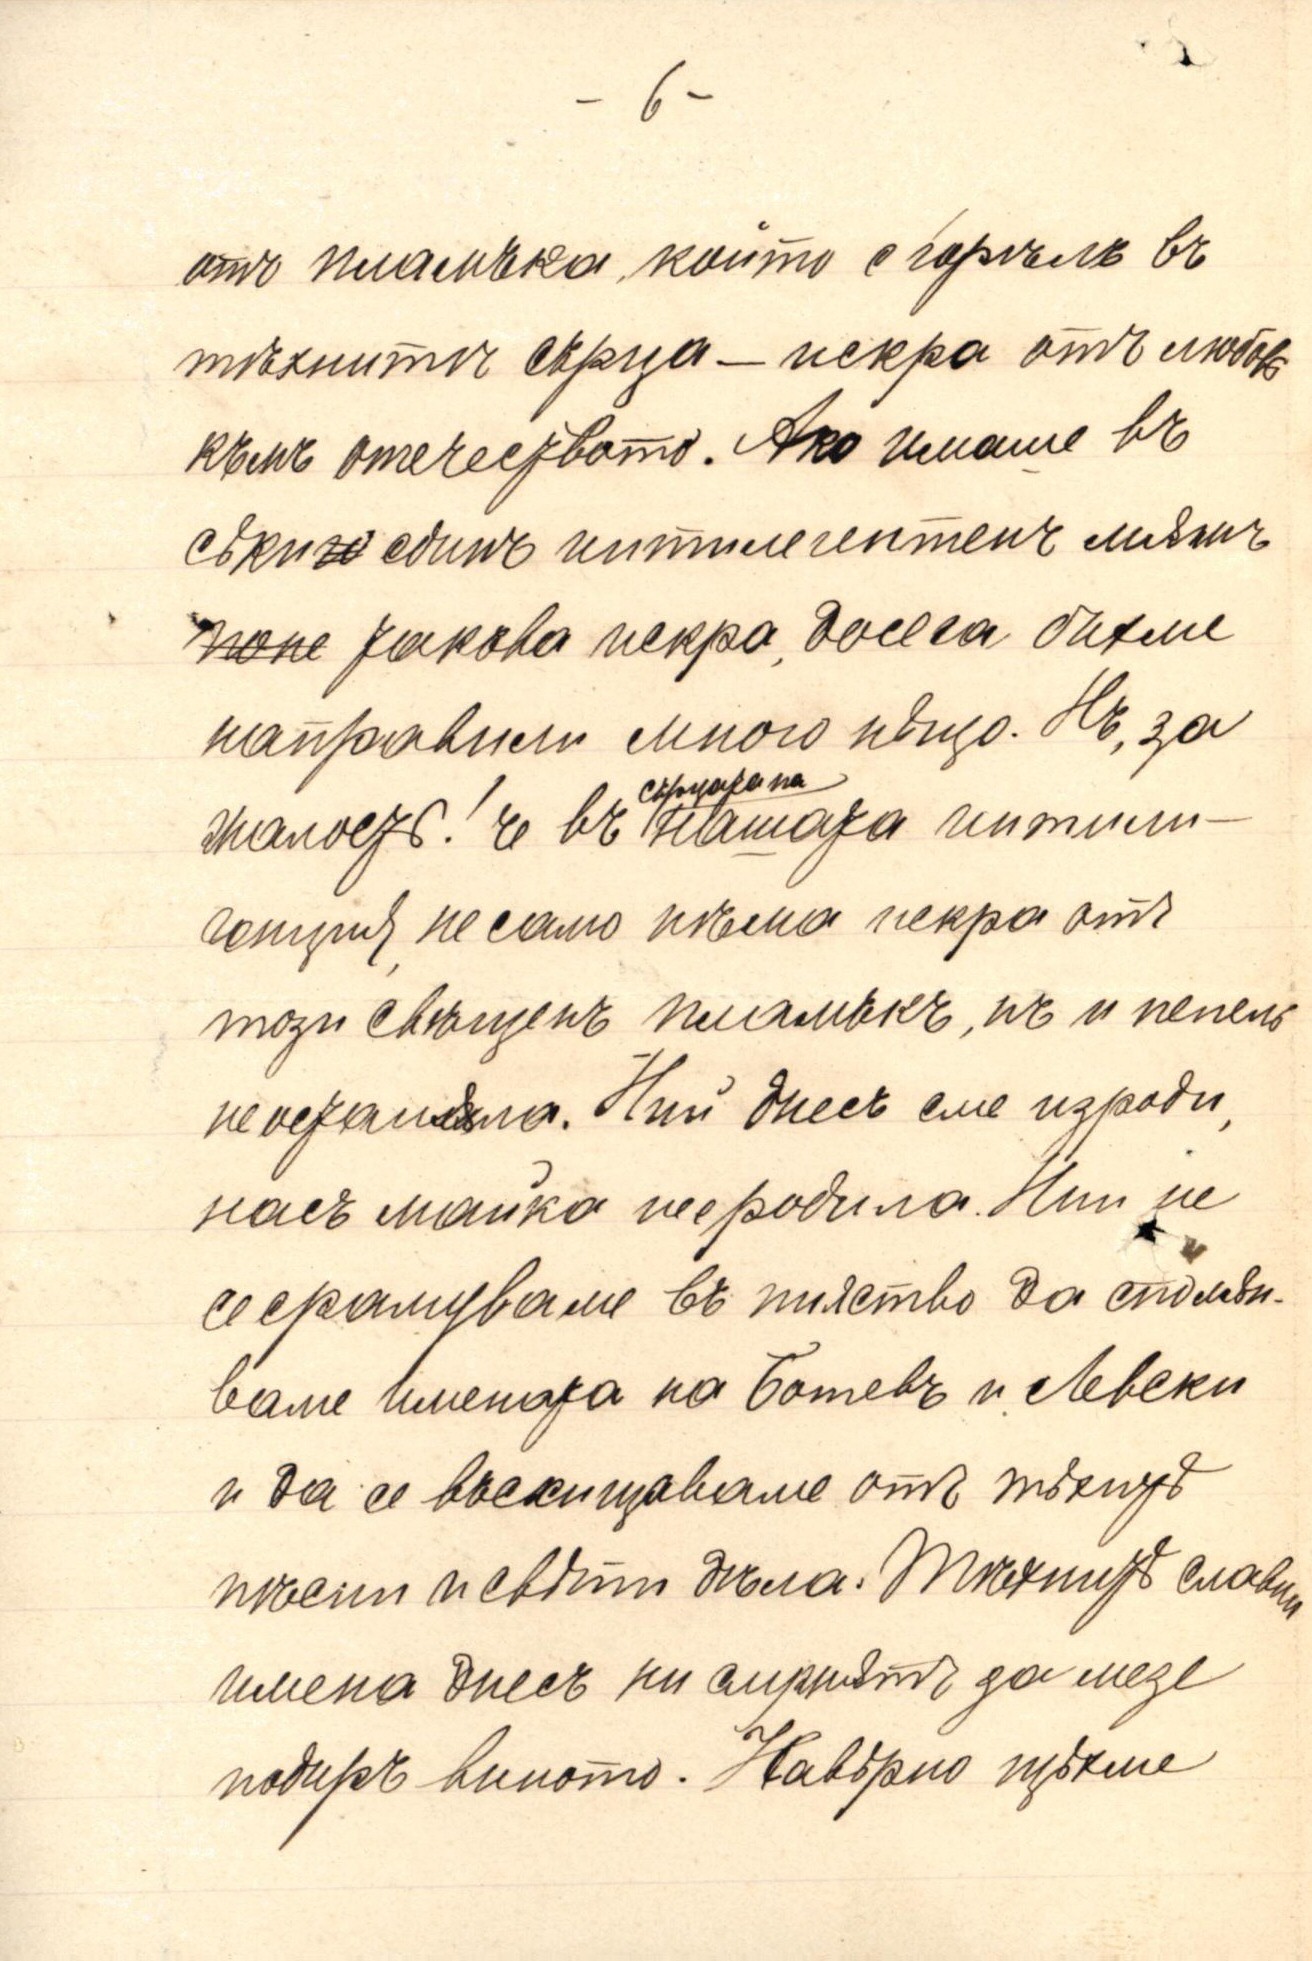 - 6 -
отъ пламъка, който е горѣлъ въ
тѣхнитѣ сърца — искра отъ любовь
къмъ отечеството. Ако имаше въ
сѣки единъ интилегентенъ
поне такъва искра, досега бихме
направили много нѣщо. Нъ, за
жалость! че въ сърцата на нашата интили-
генция, не само нѣма искра отъ
този свѣщенъ пламъкъ, нъ и пепель
не останала. Ний днесъ сме изроди,
насъ майка не е родила. Ний не
се срамуваме въ пиянство да спомѣн-
ваме имената на Ботевъ и Левски
и да се въсхищаваме отъ тѣхнитѣ
пѣсни и свѣти дѣла. Тѣхнитѣ славни
имена днесъ ни служатъ за мезе
подиръ виното. Навѣрно щѣхме